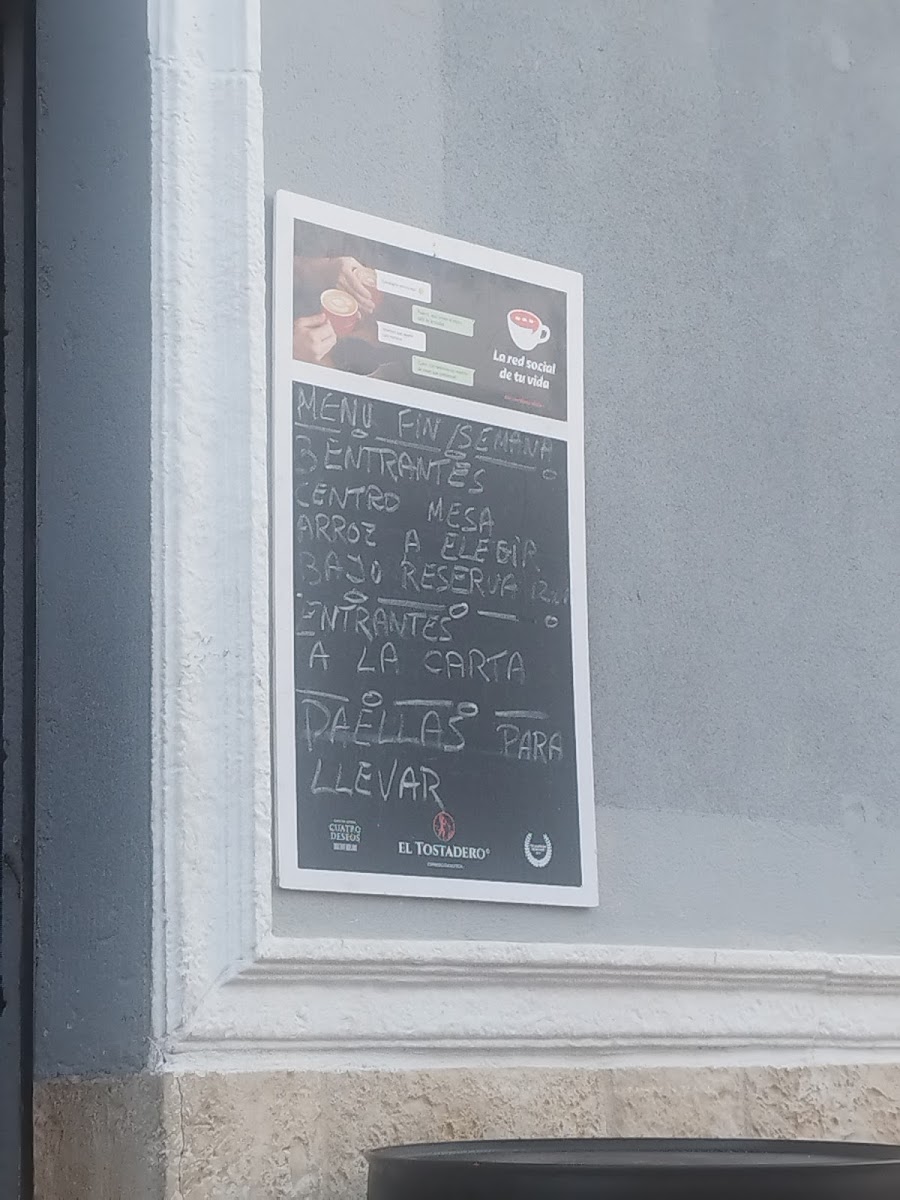 La red social
de tu vida
MENU FIN/SEMANA
3 ENTRANTES
CENTRO MESA
ARROZ A ELEGIR
BAJO RESERVA
ENTRANTES
A LA CARTA
PAELLAS PARA
LLEVAR
CUATRO
DESEOS
EL TOSTADERO